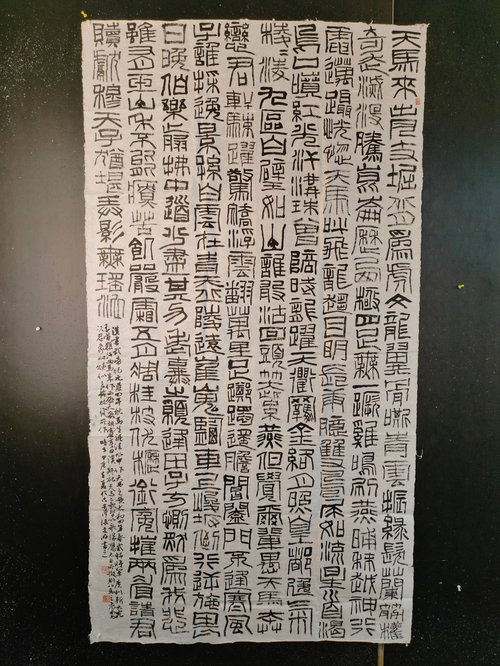 天馬來出月支堀背為虎文龍翼骨嘶青雲振綠髮蘭筋權
奇走滅沒騰昆侖歷西極四足無一蹶雞鳴刷燕晡秣越神行
電邁躡恍惚天馬呼飛龍趨目明長庚臆雙鳧尾如流星首渴
烏口噴紅光汗溝珠曾陪時龍躍天衢羈金絡月照皇都逸氣
棱凌九區白璧如山誰敢沽回頭笑紫燕但覺爾輩愚天馬奔
戀君軒駷躍驚矯浮雲翻萬里足躑躅遙瞻閶闔門不逢寒風
子誰採逸景孫白雲在青天丘陵遠崔嵬鹽車上峻坂倒行逆施畏
日晚伯樂翦拂中道遺少盡其力老棄之願逢田子方惻然為我悲
雖有玉山禾不能療苦飢嚴霜五月凋桂枝伏櫪銜冤摧兩眉請君
贖獻穆天子猶堪弄影舞瑤池
漢書武帝紀元鼎四年秋馬生渥洼水中